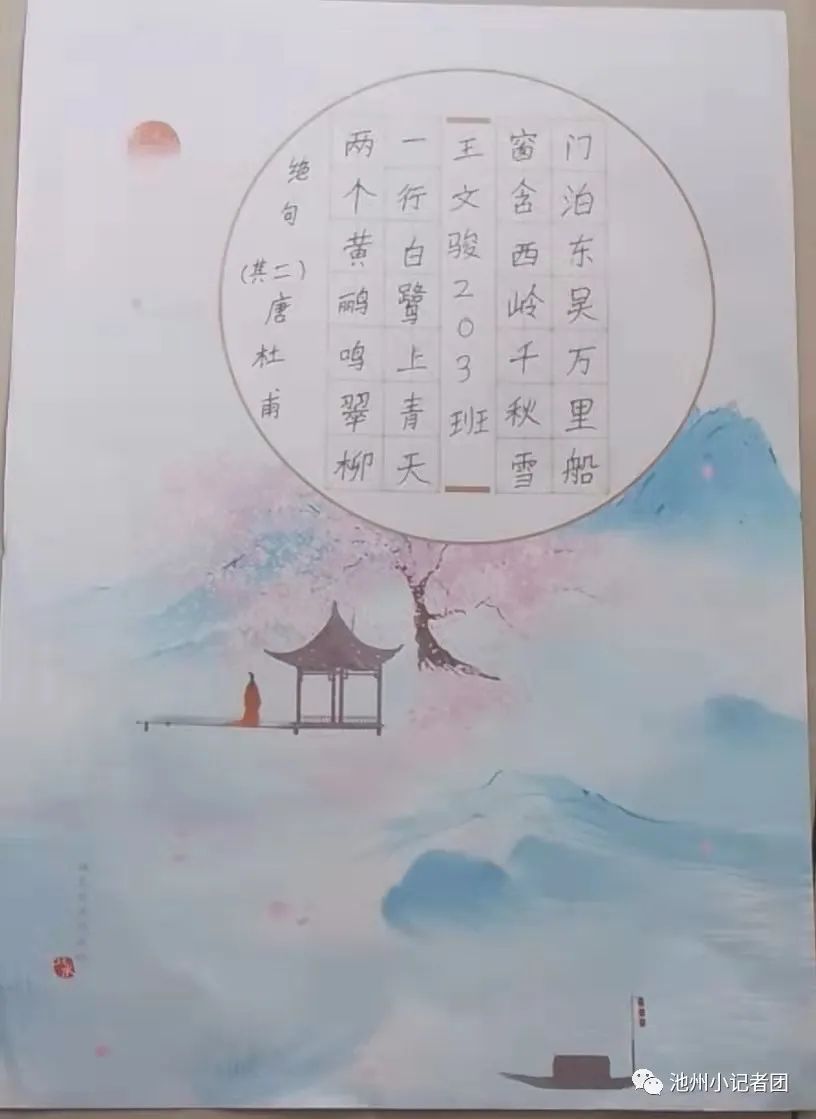 绝句(其二)唐杜甫
两个黄鹂鸣翠柳
一行白鹭上青天
王文骏203班
窗含西岭千秋雪
门泊东吴万里船
池州小记者团